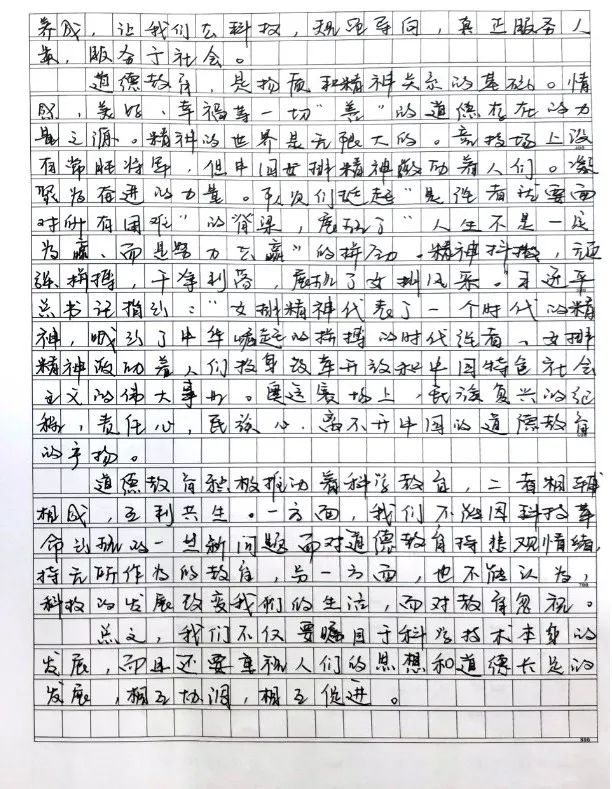 养成，让我们在科技，规范导向，真正服务人
类，服务于社会。
道德教育，是物质和精神关系的基础。情
熙，美好、幸福等一切“善”的道德存在的力
量之源。精神的世界是无限大的。竞技场上没
有常胜将军，但中国女排精神激励着人们。凝
聚为奋进的力量。她们挺起“是强者就要面
对所有困难”的脊梁，展现了“人生不是一定
会赢，而是努力去赢”的拼劲。精神抖擞，顽
强拼搏，干净利落，展现了女排风采。习近平
总书记指引：“女排精神代表了一个时代的精
神，吼引了中华崛起的拼搏的时代强者。女排
精神激励着人们投身改革开放和中国特色社会
主义的伟大事业。奥运赛场上，民族复兴的征
程，责任心，民族心，离不开中国的道德教育
的产物。
道德教育积极推动着科学教育，二者相辅
相成，互利共生。一方面，我们不能因科技革
命出现的一些新问题而对道德教育持悲观情绪，
持无所作为的教育，另一方面，也不能认为，
科技的发展改变我们的生活，而对教育忽视。
总之，我们不仅要瞩目于科学技术本身的
发展，而且还要重视人们的思想和道德长足的
发展，相互协调，相互促进。
600
700
800